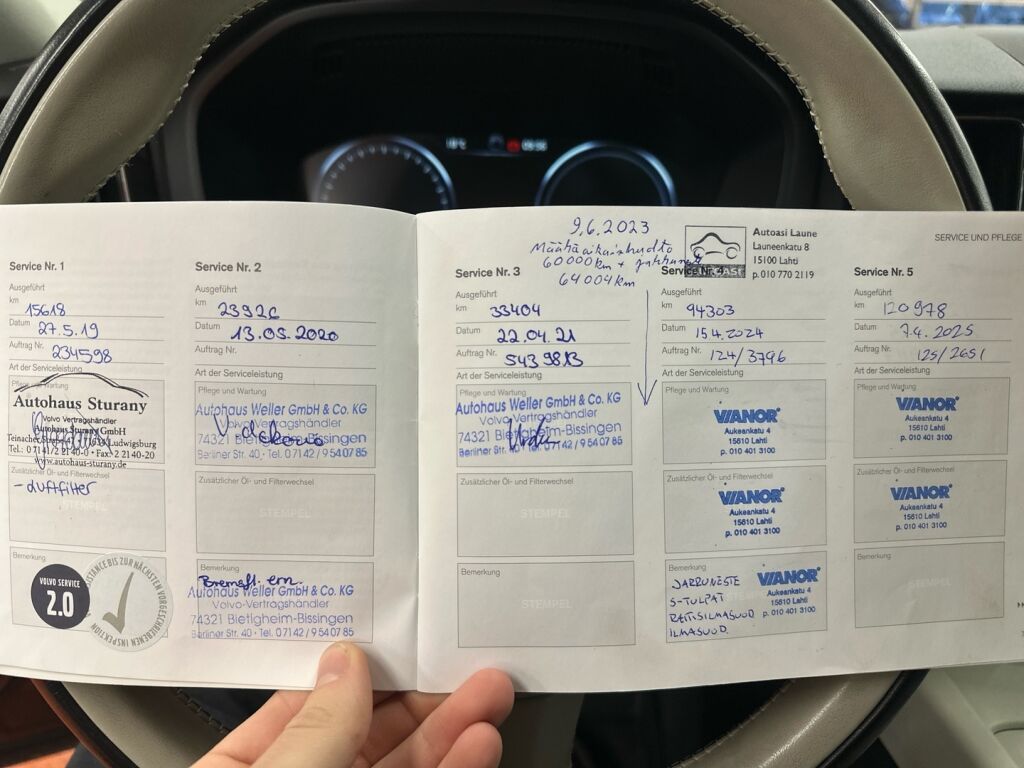 18°C
Service Nr. 1
Ausgeführt
km 15618
Datum 27.5.19
Auftrag Nr. 234598
Art der Serviceleistung
Pflege und Wartung
Autohaus Sturany
Volvo Vertragshändler
Autohaus Sturany GmbH
Ludwigsburg
www.autohaus-sturany.de
Zusätzlicher Öl- und Filterwechsel
- Luftfilter
STEMPEL
Bemerkung
VOLVO SERVICE
2.0
BIS ZUR NÄCHSTEN VORGESCHRIEBENEN INSPEKTION
Service Nr. 2
Ausgeführt
km 23926
Datum 13.05.2020
Auftrag Nr.
Art der Serviceleistung
Pflege und Wartung
Autohaus Weller GmbH & Co. KG
Volvo-Vertragshändler
74321 Bietigheim-Bissingen
Berliner Str. 40 · Tel. 07142/9540785
Zusätzlicher Öl- und Filterwechsel
STEMPEL
Bemerkung
Bremsfl. ern.
Autohaus Weller GmbH & Co. KG
Volvo-Vertragshändler
74321 Bietigheim-Bissingen
Berliner Str. 40 · Tel. 07142/9540785
9.6.2023
Määräaikaishuolto
60000km +
64004km
Service Nr. 3
Ausgeführt
km 33404
Datum 22.04.21
Auftrag Nr. 5439813
Art der Serviceleistung
Pflege und Wartung
Autohaus Weller GmbH & Co. KG
Volvo-Vertragshändler
74321 Bietigheim-Bissingen
Berliner Str. 40 · Tel. 07142/9540785
Zusätzlicher Öl- und Filterwechsel
STEMPEL
Bemerkung
STEMPEL
Autoasi Laune
Launeenkatu 8
15100 Lahti
p. 010 770 2119
Service Nr. 4
Ausgeführt
km 94303
Datum 15.4.2024
Auftrag Nr. 124/3796
Art der Serviceleistung
Pflege und Wartung
VIANOR
Aukeankatu 4
15610 Lahti
p. 010 401 3100
Zusätzlicher Öl- und Filterwechsel
VIANOR
Aukeankatu 4
15610 Lahti
p. 010 401 3100
Bemerkung
JARRUNESTE
S-TULPAT
RAITISILMASUOD
ILMASUOD.
VIANOR
Aukeankatu 4
15610 Lahti
p. 010 401 3100
SERVICE UND PFLEGE
Service Nr. 5
Ausgeführt
km 120978
Datum 7.4.2025
Auftrag Nr. 125/2651
Art der Serviceleistung
Pflege und Wartung
VIANOR
Aukeankatu 4
15610 Lahti
p. 010 401 3100
Zusätzlicher Öl- und Filterwechsel
VIANOR
Aukeankatu 4
15610 Lahti
p. 010 401 3100
Bemerkung
STEMPEL